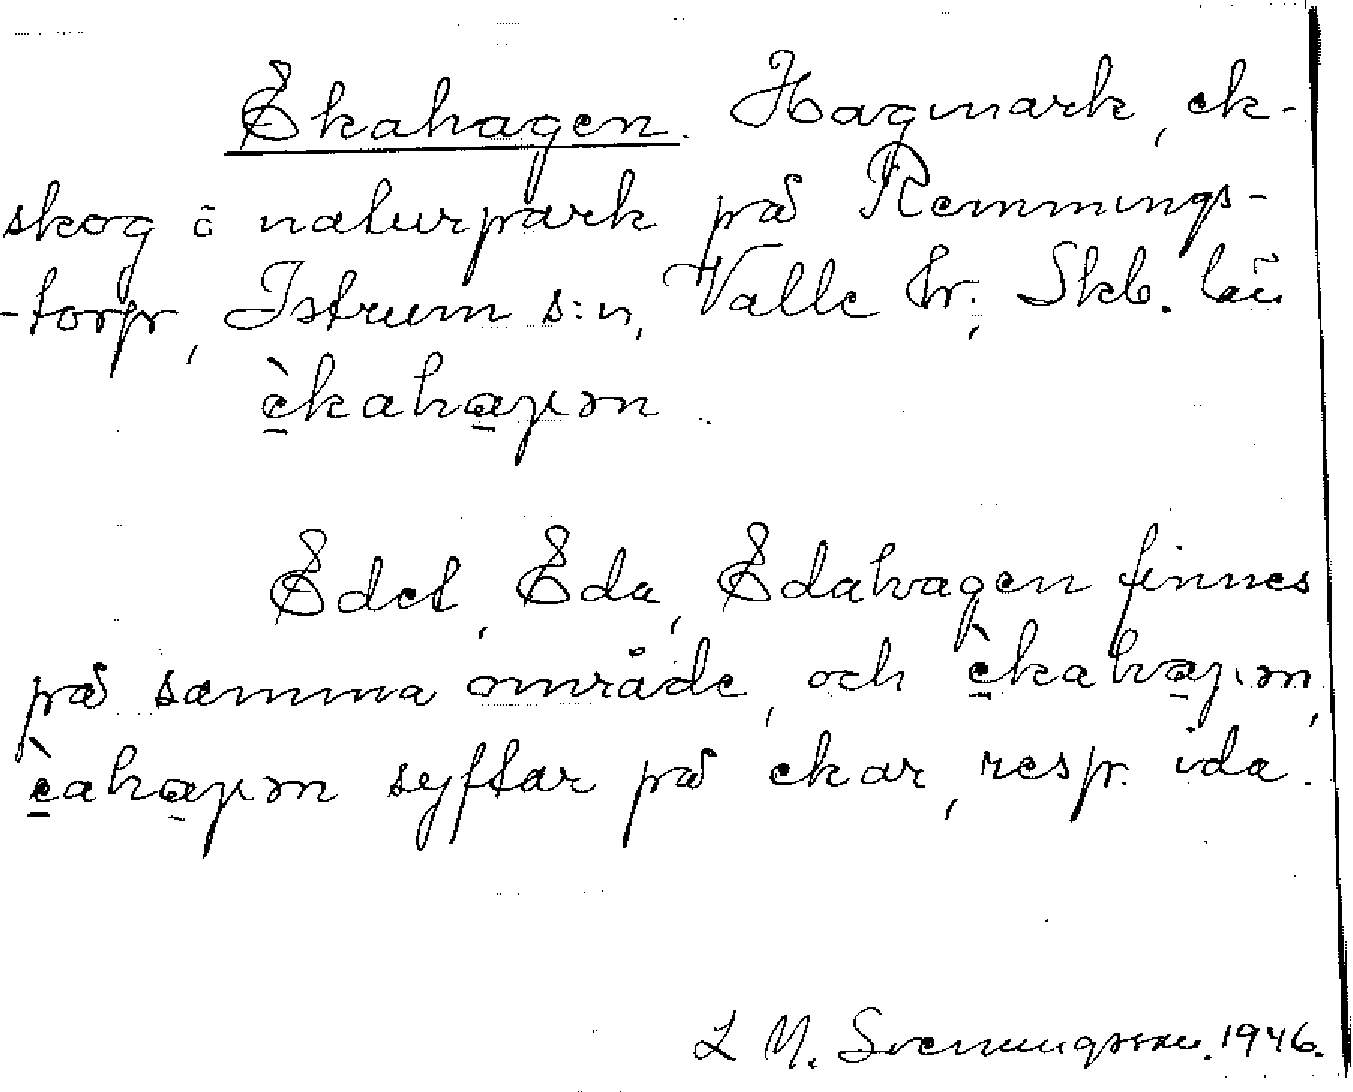 Ekahagen. Hagmark, ek-
skog i naturpark på Remmings-
-torp, Istrum s:n, Valle hr, Skb. län
è̱kaha̱γən.
Edet, Eda, Edahagen finnes
på samma område, och è̱kaha̱γən,
è̱aha̱γən syftar på ekar, resp. ida.
L M. Svenungsson. 1946.